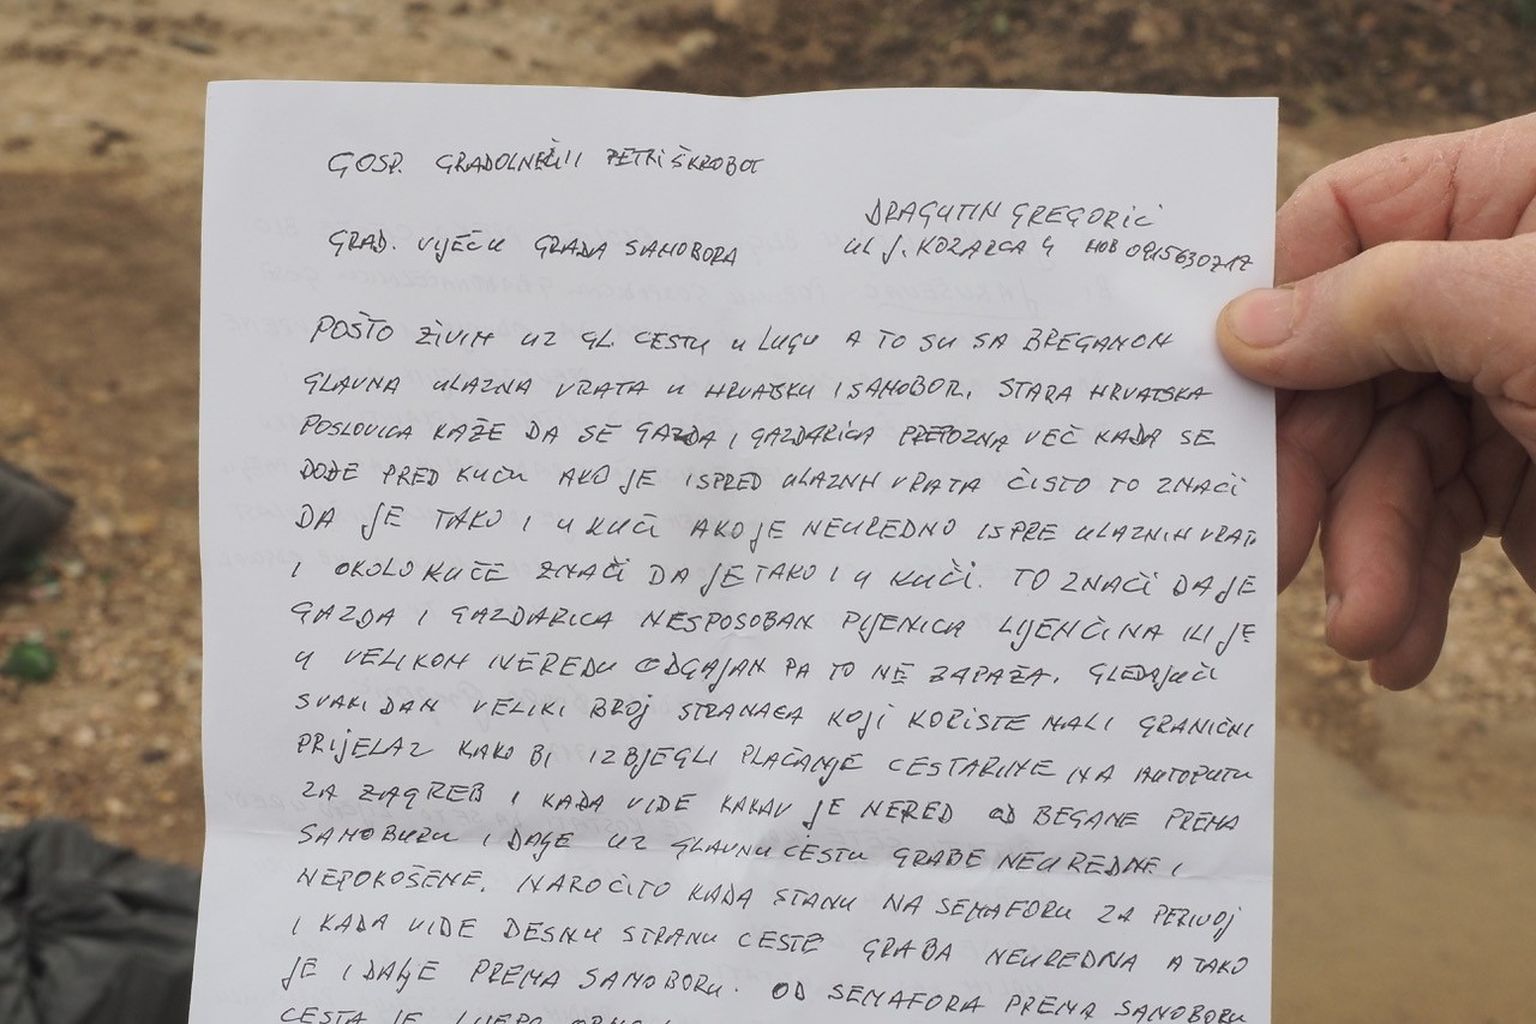 GOSP. GRADOLNEČII PETRI ŠKROBOT
DRAGUTIN GREGORIĆ
GRAD. VIJEĆU GRADA SAMOBORA
UL J. KOZARCA 4 MOB 0915630717
POŠTO ŽIVIM UZ GL. CESTU U LUGU A TO SU SA BREGANOM
GLAVNA ULAZNA VRATA U HRVATSKU I SAMOBOR. STARA HRVATSKA
POSLOVICA KAŽE DA SE GAZDA I GAZDARICA PREPOZNA VEČ KADA SE
DOĐE PRED KUĆU AKO JE ISPRED ULAZNH VRATA ČISTO TO ZNAČI
DA JE TAKO I U KUĆI AKO JE NEUREDNO ISPRE ULAZNIH VRATA
I OKOLO KUĆE ZNAČI DA JE TAKO I U KUĆI. TO ZNAČI DA JE
GAZDA I GAZDARICA NESPOSOBAN PIJENICA LIJENČINA ILI JE
U VELIKOM NEREDU ODGAJAN PA TO NE ZAPAŽA. GLEDAJUĆI
SVAKI DAN VELIKI BROJ STRANACA KOJI KORISTE MALI GRANIČNI
PRIJELAZ KAKO BI IZBJEGLI PLAČANJE CESTARINE NA AUTOPUTU
ZA ZAGREB I KADA VIDE KAKAV JE NERED OD BEGANE PREMA
SAMOBURU I DALJE UZ GLAVNU CESTU GRABE NEUREDNE I
NEPOKOŠENE. NAROČITO KADA STANU NA SEMAFORU ZA PERIVOJ
I KADA VIDE DESNU STRANU CESTE GRABA NEUREDNA A TAKO
JE I DALJE PREMA SAMOBORU. OD SEMAFORA PREMA SAMOBORU
CESTA JE LIJEPO